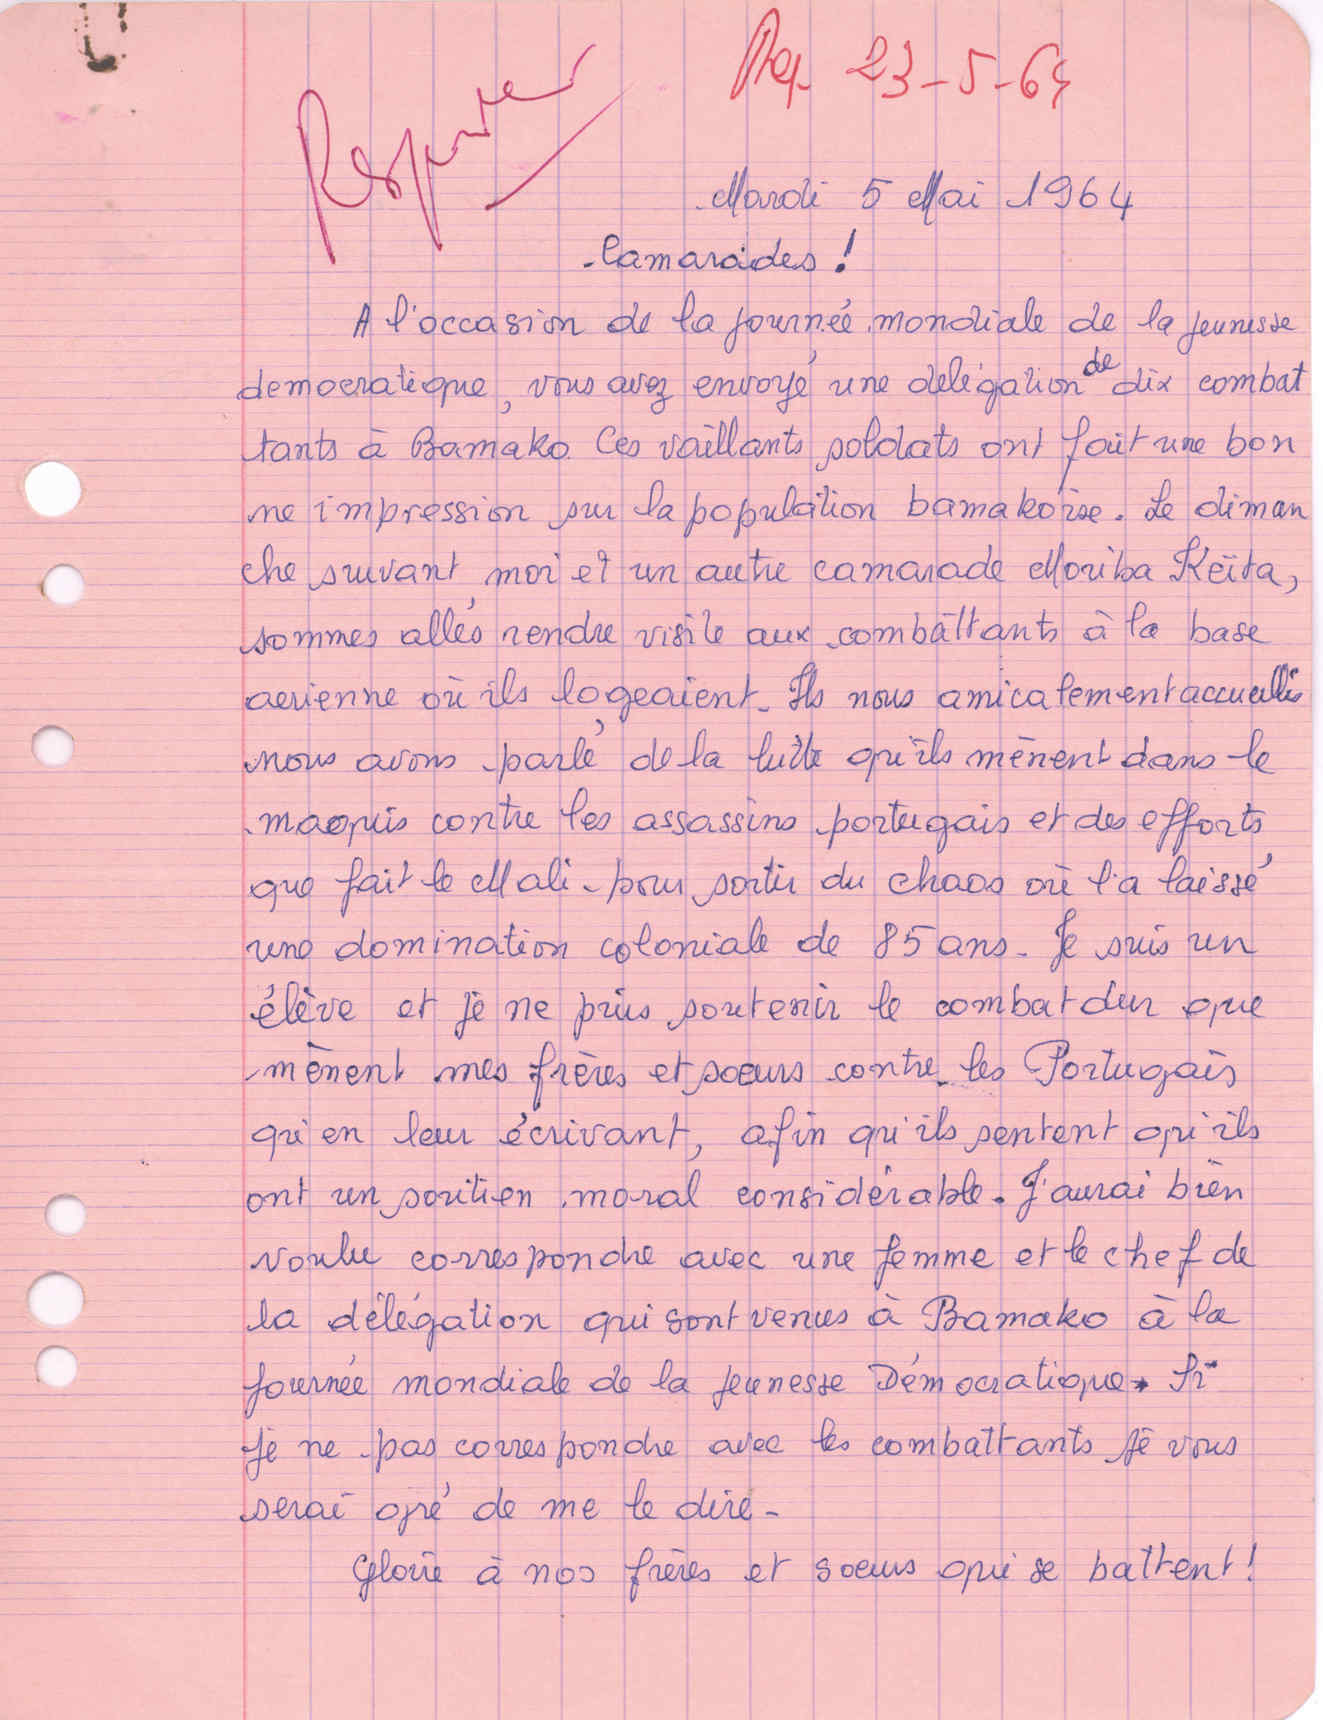 Rep 23-5-64
Mardi 5 Mai 1964
Camarades !
A l'occasion de la journée mondiale de la jeunesse
democratique, vous avez envoyé une délégation de dix combat
tants à Bamako. Ces vaillants soldats ont fait une bon
ne impression sur la population bamakoise. Le diman
che suivant, moi et un autre camarade Moriba Këita,
sommes allés rendre visite aux combattants à la base
aerienne où ils logeaient. Ils nous amicalement accueillis
nous avons parlé de la lutte qu'ils mènent dans le
maquis contre les assassins portugais et des efforts
que fait le Mali pour sortir du chaos où l'a laissé
une domination coloniale de 85 ans. Je suis un
élève et je ne puis soutenir le combat dur que
mènent mes frères et soeurs contre les Portugais
qu'en leur écrivant, afin qu'ils sentent qu'ils
ont un soutien moral considérable. J'aurai bien
voulu correspondre avec une femme et le chef de
la délégation qui sont venus à Bamako à la
journée mondiale de la jeunesse Démocratique. Si
je ne pas correspondre avec les combattants je vous
serai gré de me le dire.
Gloire à nos frères et soeurs qui se battent !